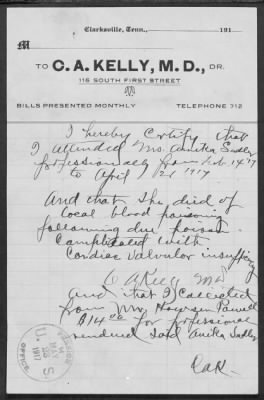 Clarksville, Tenn., 191
M
TO C. A. KELLY, M. D., DR.
115 SOUTH FIRST STREET
BILLS PRESENTED MONTHLY TELEPHONE 312
I hereby Certify that
I attended Mrs. Amitia Sadler
professionally from Feb. 14" 17
to April 1st 1917
And that she died of
local blood poisoning
following
Complicated with
Cardiac Valvular insufficy
C A Kelly M D
And that I Collected
from Mr Powell
$14.00 for professional
rendered said Amitia Sadler
CaK.
1917